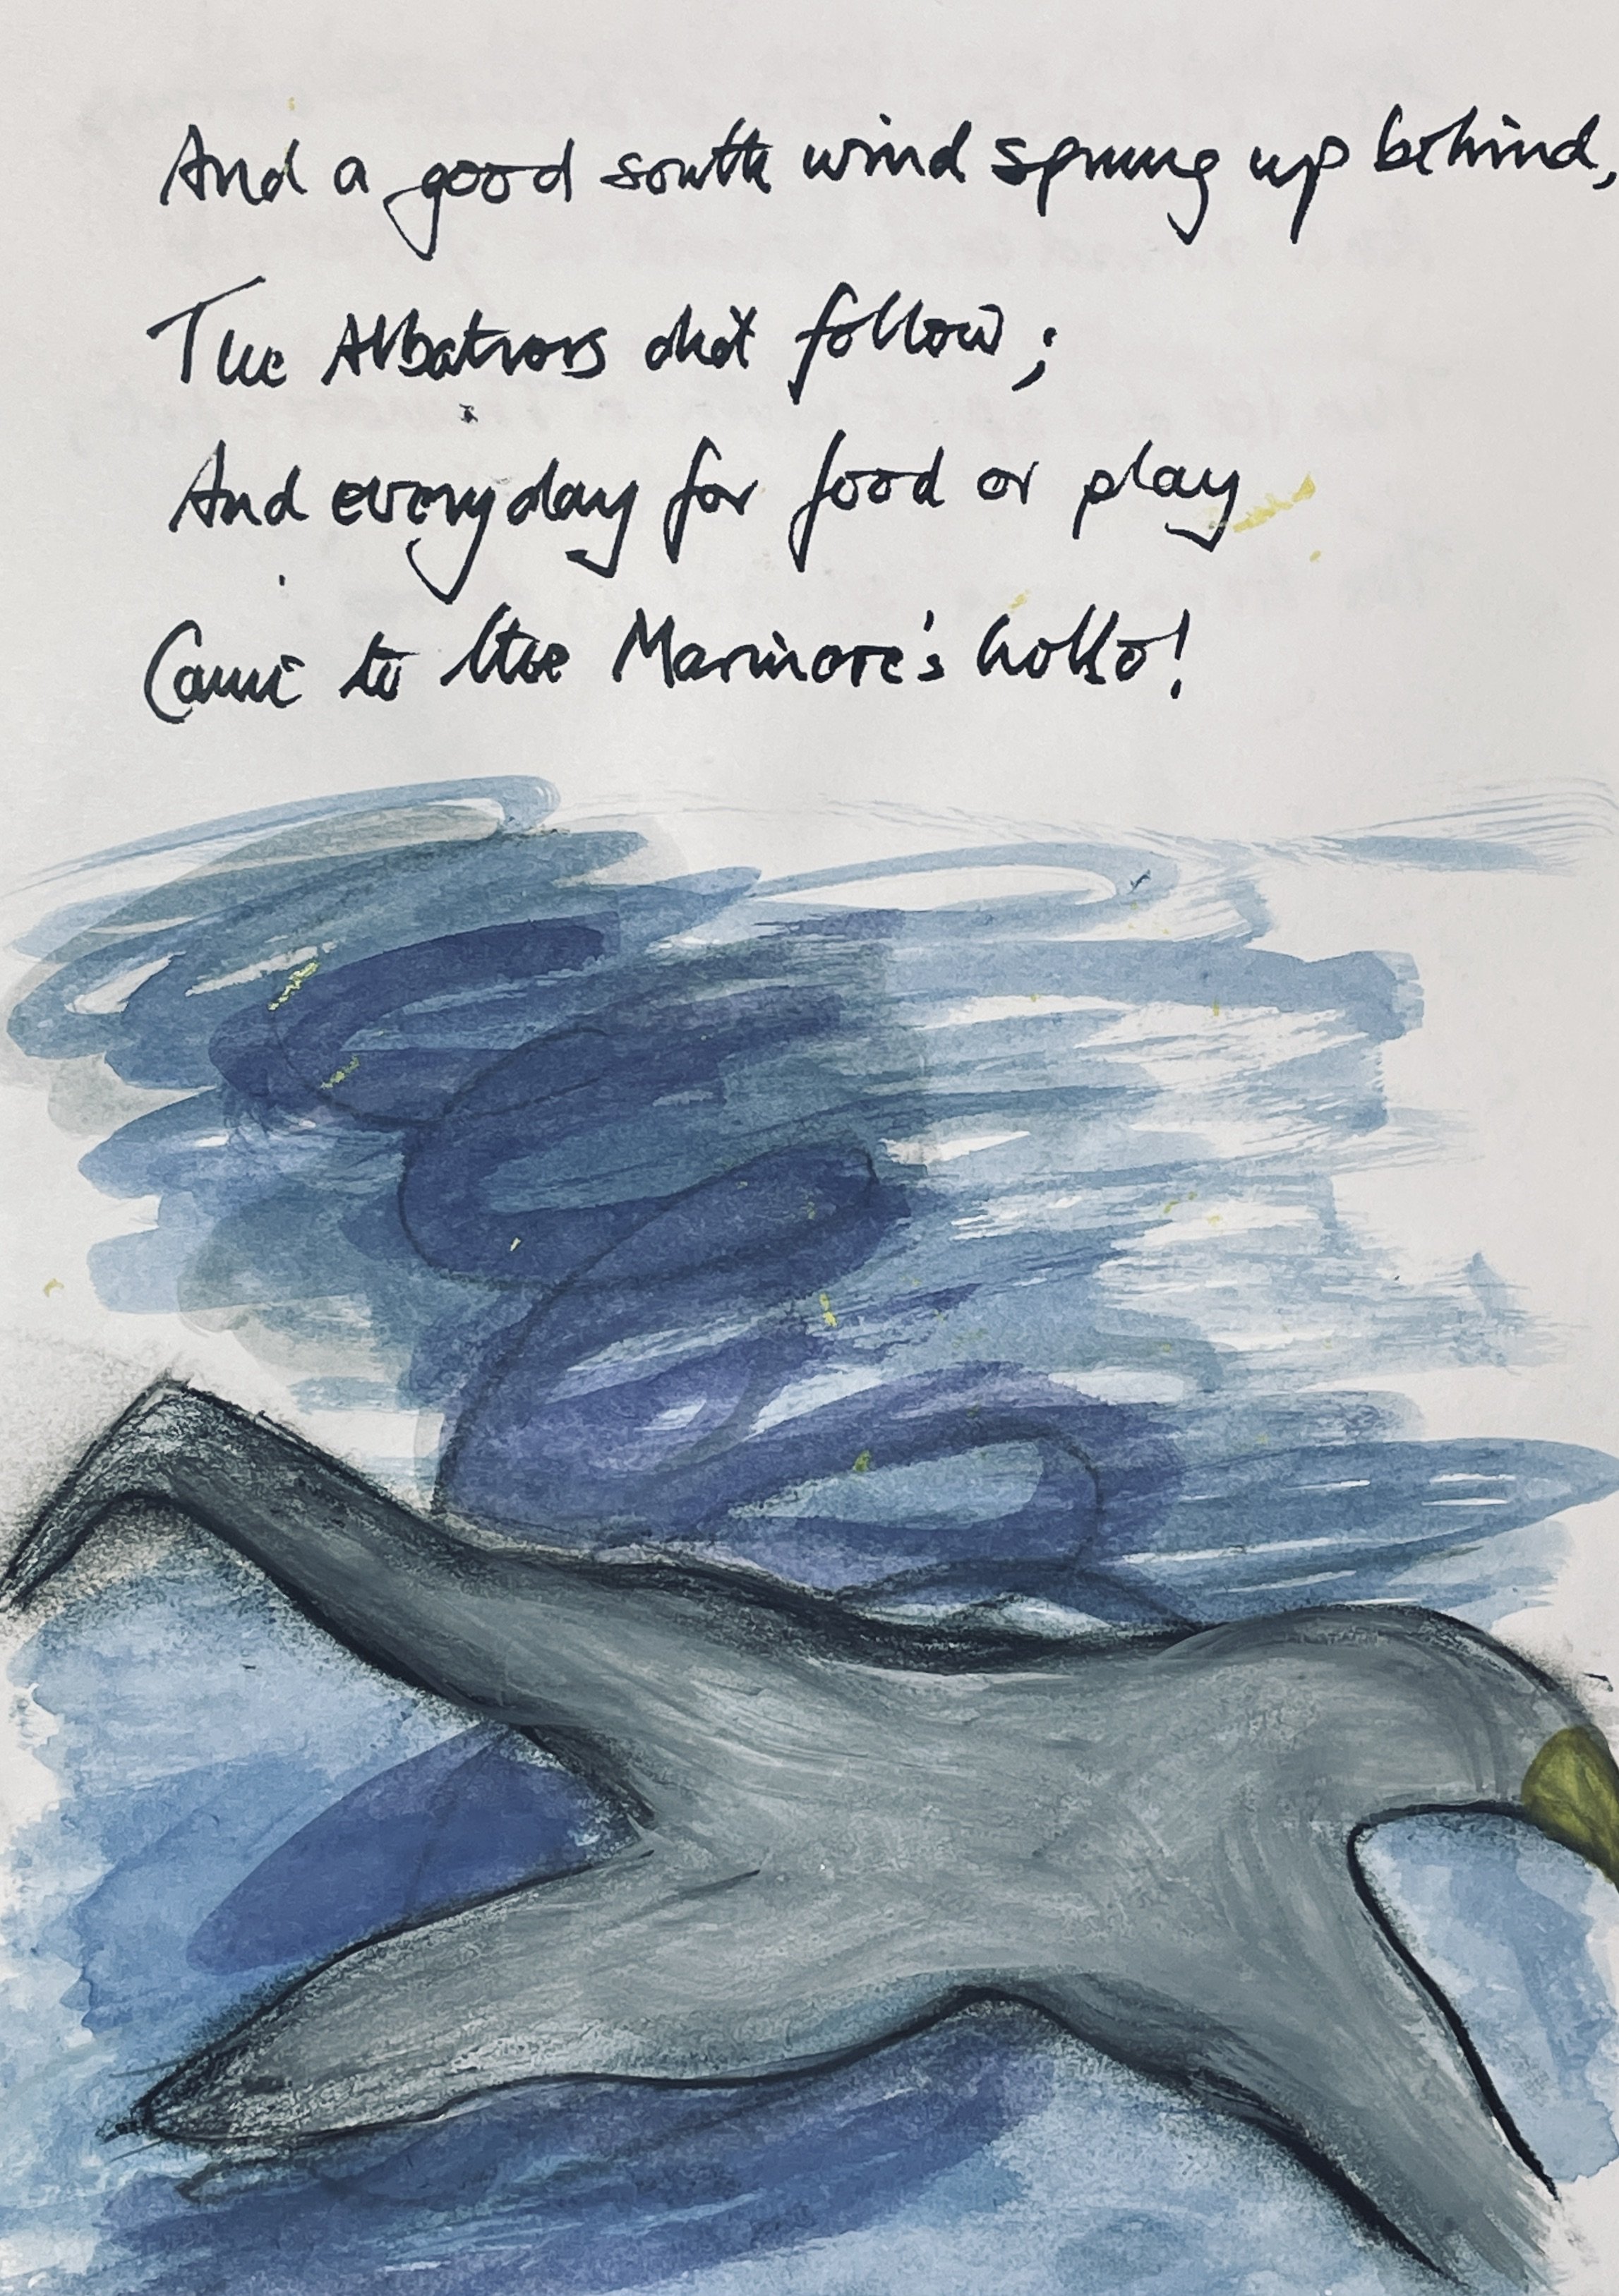 And a good south wind sprung up behind,
The Albatross did follow;
And every day for food or play
Came to the Marinere's hollo!